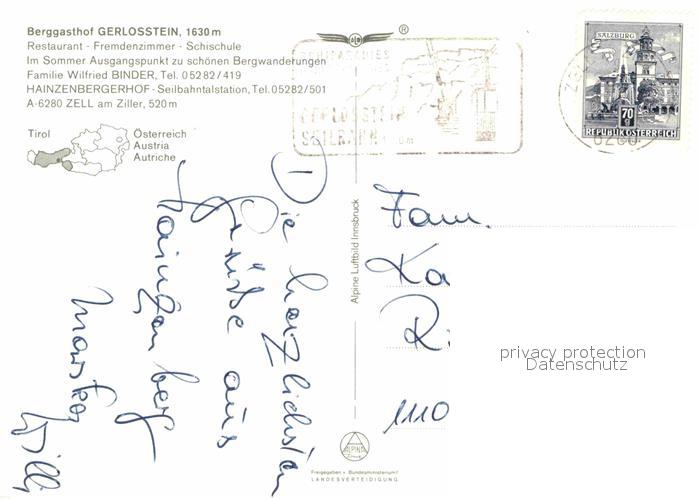 Berggasthof GERLOSSTEIN, 1630 m
Restaurant · Fremdenzimmer · Schischule
Im Sommer Ausgangspunkt zu schönen Bergwanderungen
Familie Wilfried BINDER, Tel. 05282/419
HAINZENBERGERHOF · Seilbahntalstation, Tel. 05282/501
A-6280 ZELL am Ziller, 520 m
Tirol
Österreich
Austria
Autriche
®
GERLOSSTEIN
SEILBAHN
SALZBURG
70 g
REPUBLIK ÖSTERREICH
6280
Die herzlichsten
Grüße aus
Willi
Alpine Luftbild Innsbruck
Fam.
Ka
R
1110
privacy protection
Datenschutz
ALPINE
Freigegeben v. Bundesministerium f.
LANDESVERTEIDIGUNG